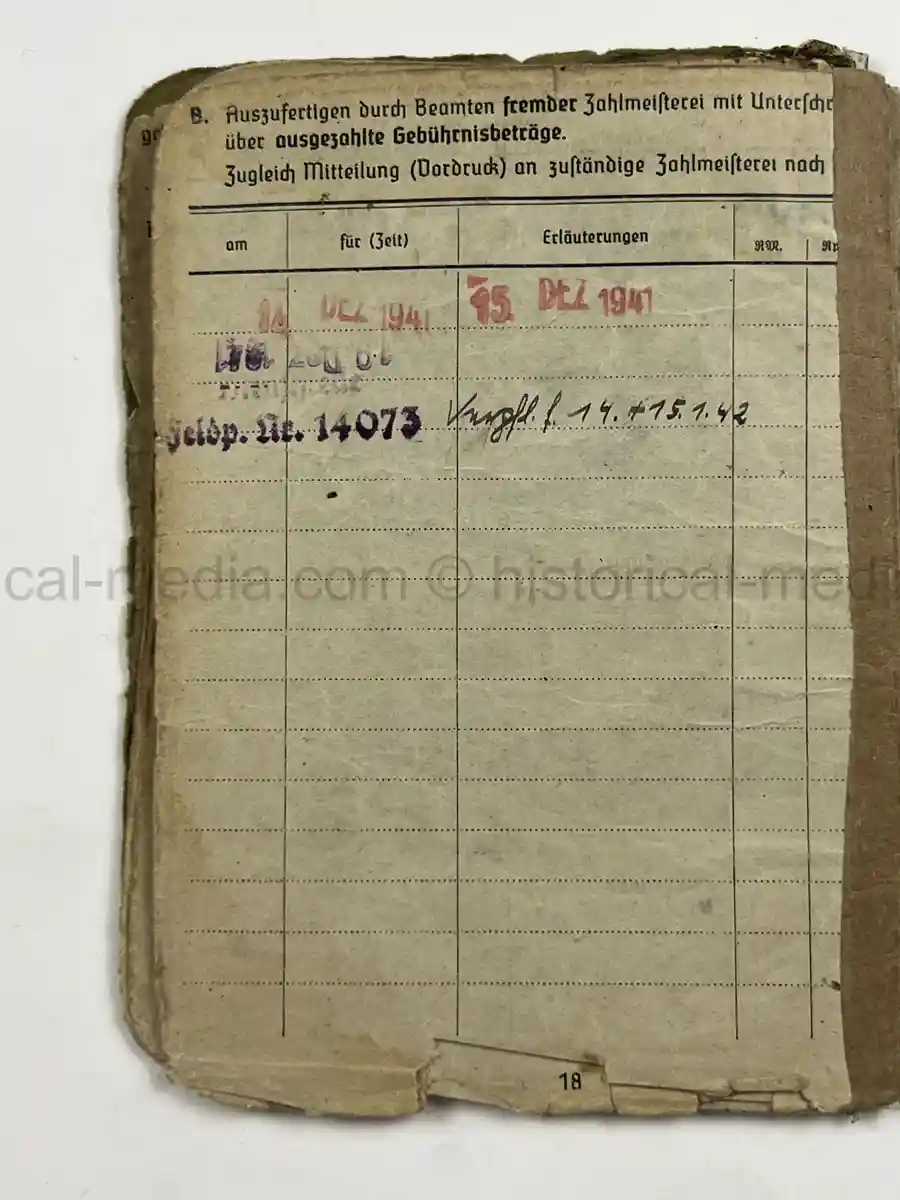 B. Auszufertigen durch Beamten fremder Zahlmeisterei mit Unterschr
über ausgezahlte Gebührnisbeträge.
Zugleich Mitteilung (Vordruck) an zuständige Zahlmeisterei nach
am für (Zeit) Erläuterungen RM.
DEZ 1941 15. DEZ 1941
Feldp. Nr. 14073 Verpfl. f. 14. + 15.1.42
cal-media.com © historical-medi
18